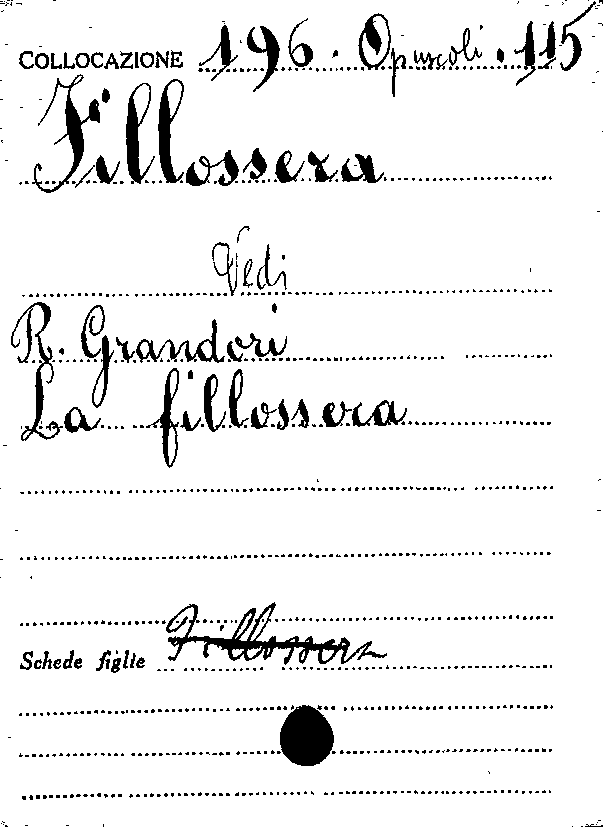 COLLOCAZIONE 196. Opuscoli. 115
Fillossera
Vedi
R. Grandori
La fillossera
Schede figlie Fillossera